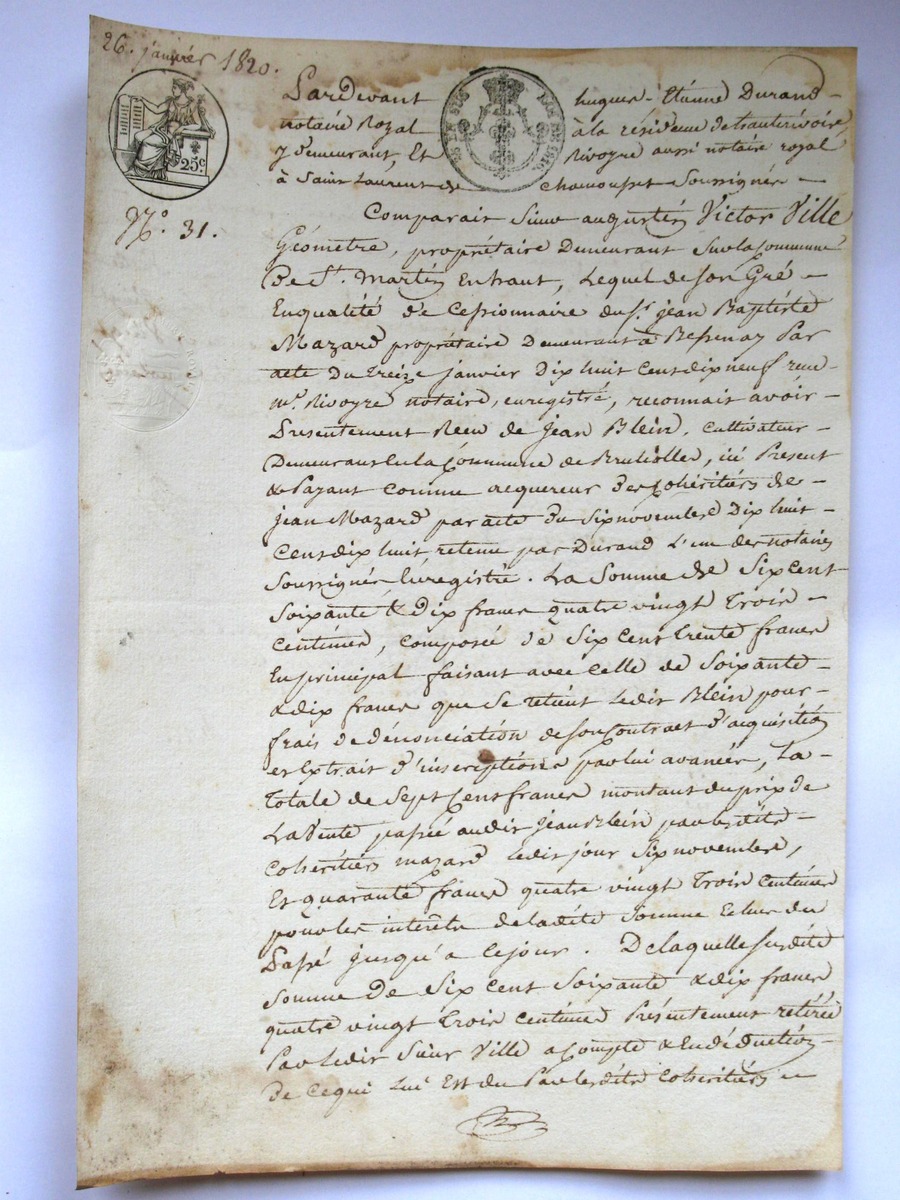 26. janvier 1820.
25c.
N.o 31.
Pardevant hugues-Etienne Durand
notaire Royal à la résidence de hauterivoire,
y demeurant, Et Rivoyre aussi notaire royal
à Saint Laurent de Chamousset Soussignés
Comparait Sieur augustin Victor Ville
Géometre, propriétaire Demeurant Sur la Commune
De St. Martin En haut, Lequel de Son Gré
En qualité de Cessionnaire du Sr. jean Baptiste
Mazard propriétaire Demeurant à Bessenay Par
acte Du treize janvier Dix huit Cent dix neuf recu
me. Rivoyre notaire, enregistré, reconnait avoir
Presentement Recu de jean Blein, Cultivateur
Demeurant En la Commune de Brullolles, ici Présent
& Payant comme acquereur des Cohéritiers de
jean Mazard par acte du Six novembre Dix huit
Cent dix huit retenu par Durand L'un des notaires
Soussignés Enregistré. La Somme de Six Cent
Soixante & dix francs quatre vingt Trois
Centimes, composée de Six Cent trente francs
En principal faisant avec Celle de Soixante
& dix francs que Se retient Ledit Blein pour
frais de dénonciation de Son Contrat d'acquisition
et Extrait d'inscriptions par lui avancés, La
Totale de Sept Cent francs montant du prix de
La Vente passée audit jean Blein par lesdits
Cohéritiers mazard Ledit jour Six novembre,
Et quarante francs quatre vingt Trois Centimes
pour les intérêts de ladite Somme Echus du
Passé jusqu'a ce jour. De laquelle Susdite
Somme De Six Cent Soixante & dix francs
quatre vingt Trois centimes Présentement retirée
Par Ledit Sieur Ville a Compte & En déduction
De Ce qui Lui Est du Par Lesdits Cohéritiers